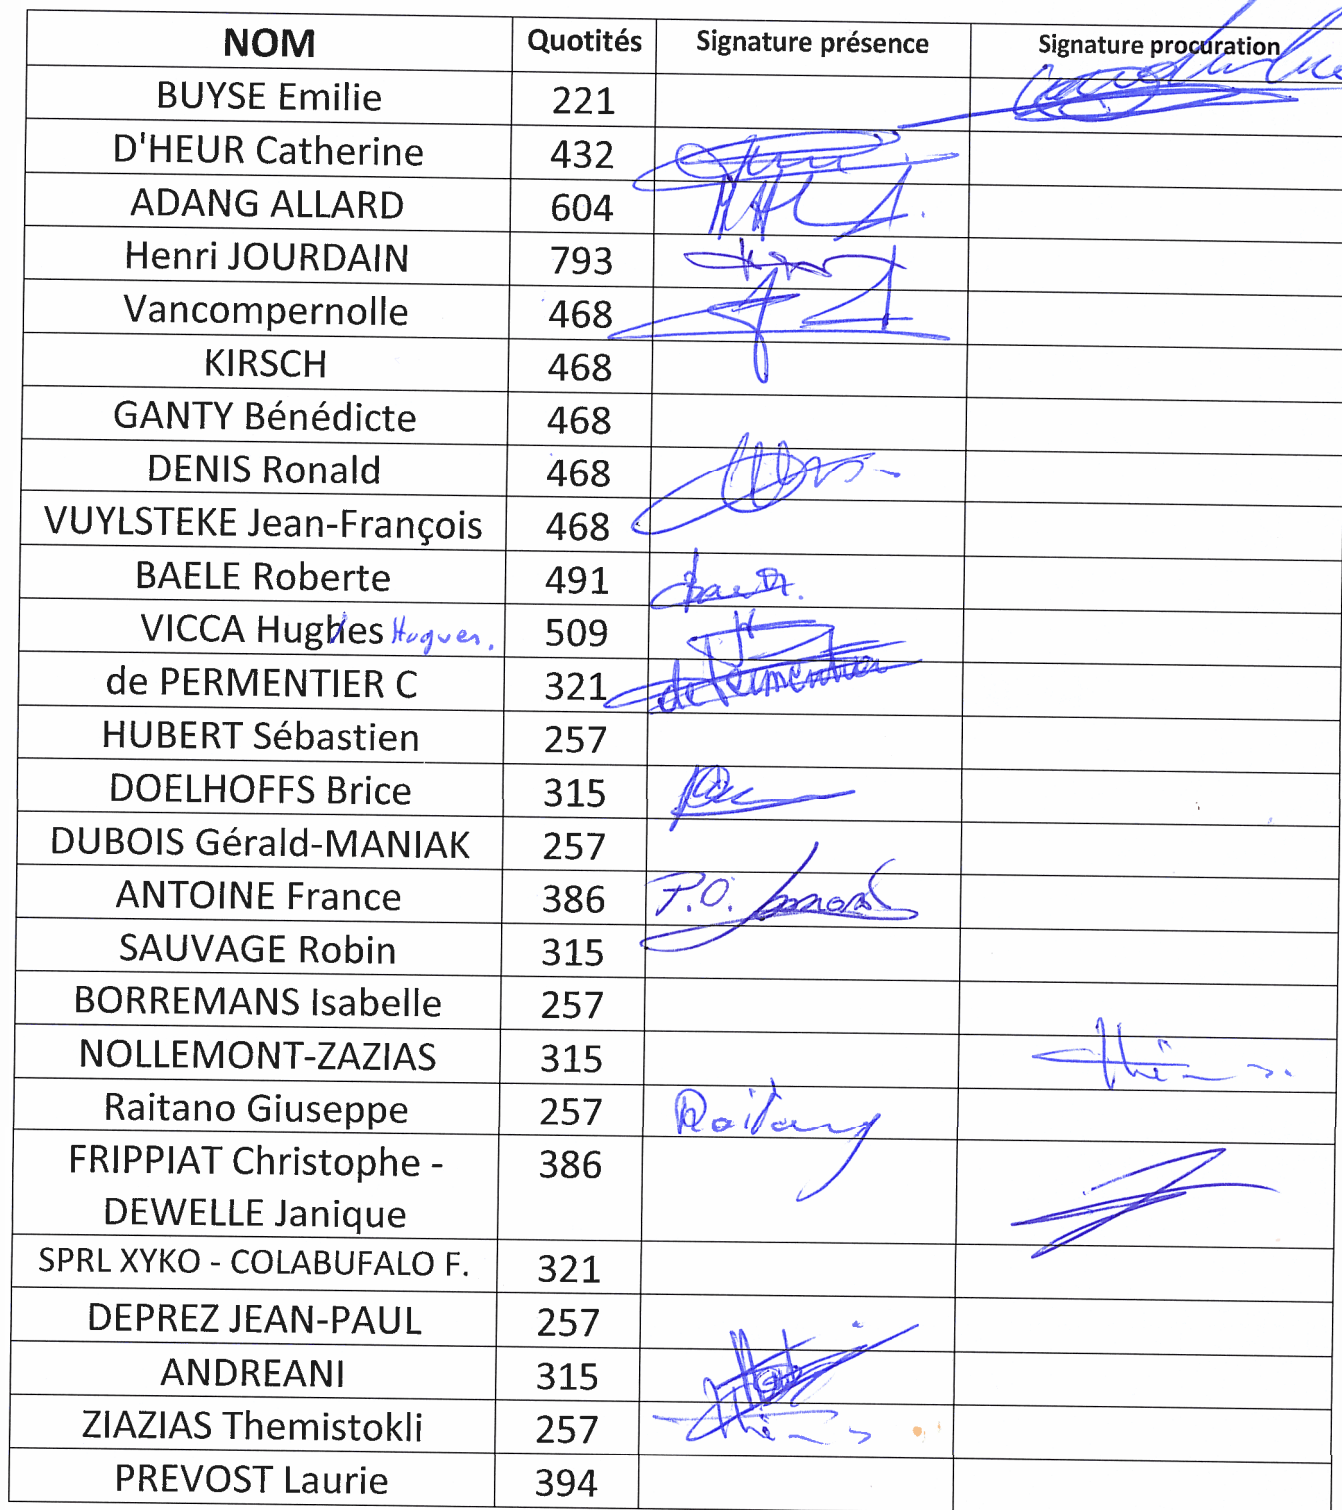 NOM Quotités Signature présence Signature procuration
BUYSE Emilie 221
D'HEUR Catherine 432
ADANG ALLARD 604
Henri JOURDAIN 793
Vancompernolle 468
KIRSCH 468
GANTY Bénédicte 468
DENIS Ronald 468
VUYLSTEKE Jean-François 468
BAELE Roberte 491
VICCA Hughes Hugues. 509
de PERMENTIER C 321 de Permentier
HUBERT Sébastien 257
DOELHOFFS Brice 315
DUBOIS Gérald-MANIAK 257
ANTOINE France 386 P.O.
SAUVAGE Robin 315
BORREMANS Isabelle 257
NOLLEMONT-ZAZIAS 315
Raitano Giuseppe 257 Raitano
FRIPPIAT Christophe - 386
DEWELLE Janique
SPRL XYKO - COLABUFALO F. 321
DEPREZ JEAN-PAUL 257
ANDREANI 315
ZIAZIAS Themistokli 257
PREVOST Laurie 394